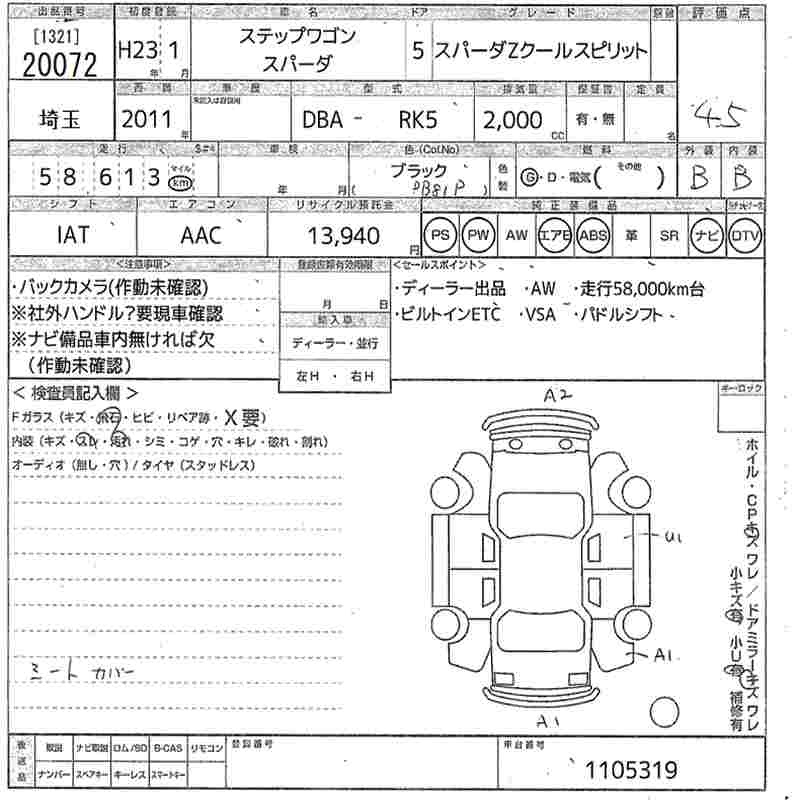 出品番号 初度登録 車名 ドア グレード 評価点
[1321]
20072 H23 1 年 月 ステップワゴン スパーダ 5 スパーダZクールスピリット 4.5
埼玉 2011 年 型式 DBA - RK5 排気量 2,000 CC 保証書 有・無 定員 名
走行 車検 色(Col.No) 燃料 その他 外装 内装
58613 マイル km 年 月 ブラック (PB81P) 色替 G・D・電気( ) B B
シフト エアコン リサイクル預託金 純正装備品
IAT AAC 13,940 円 PS PW AW エアB ABS 革 SR ナビ DTV
<注意事項> 登録依頼有効期限 <セールスポイント>
・バックカメラ(作動未確認) 月 日 ・ディーラー出品 ・AW ・走行58,000km台
※社外ハンドル?要現車確認 輸入車 ・ビルトインETC ・VSA ・パドルシフト
※ナビ備品車内無ければ欠 ディーラー・並行
(作動未確認) 左H ・ 右H
< 検査員記入欄 > キーロック
Fガラス(キズ・飛石・ヒビ・リペア跡・X要)
内装(キズ・スレ・汚れ・シミ・コゲ・穴・キレ・破れ・割れ)
オーディオ(無し・穴)/タイヤ(スタッドレス)
A2
U1
A1
A1
ホイル・CPキズワレ/ドアミラーキズワレ
小キズ有 小U有 補修有
シートカバー
後送品 取説 ナビ取説 ロム/SD B-CAS リモコン 登録番号 車台番号
ナンバー スペアキー キーレス スマートキー 1105319